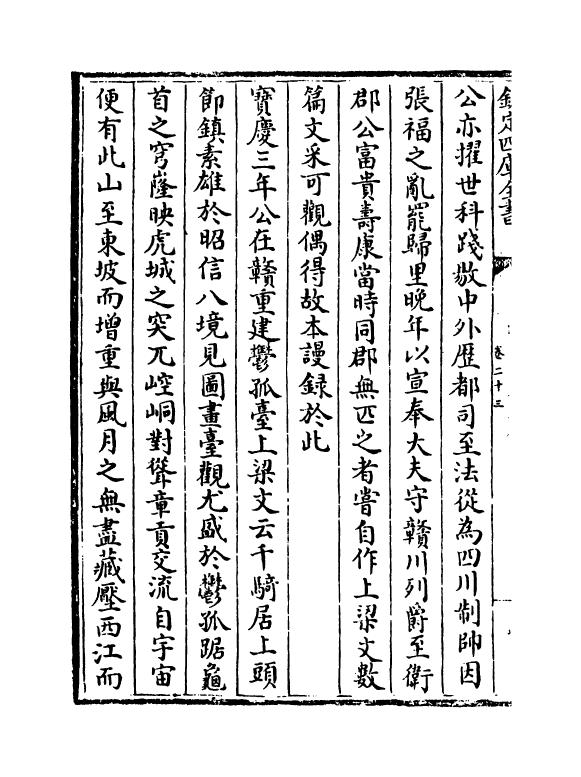 欽定四庫全書
卷二十三
公亦擢世科踐敭中外歴都司至法從為四川制帥因
張福之亂罷歸里晚年以宣奉大夫守贛川列爵至衛
郡公富貴壽康當時同郡無匹之者嘗自作上梁文數
篇文采可觀偶得故本謾録於此
寳慶三年公在贛重建鬱孤臺上梁文云千騎居上頭
節鎮素雄於昭信八境見圖畫臺觀尤盛於鬱孤踞龜
首之穹窿映虎城之突兀崆峒對聳章貢交流自宇宙
便有此山至東坡而增重與風月之無盡藏壓西江而